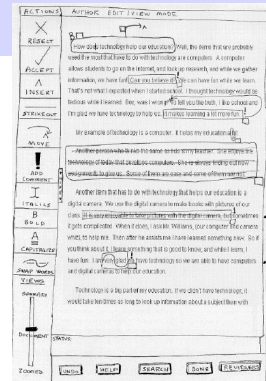 ACTIONS
AUTHOR EDIT/VIEW MODE
RESELECT
ACCEPT
INSERT
STRIKEOUT
MOVE
ADD COMMENT
ITALICS
BOLD
CAPITALIZE
SWAP WORDS
VIEWS
DOCUMENT
ZOOMED
How does technology help our education? Well, the items that are probably
used the most that have to do with technology are computers. A computer
allows students to go on the internet, and look up research, and while we gather
information, we have fun! Can you believe it? We can have fun while we learn.
That's not what I expected when I started school. I thought technology would be
tedious while I learned. Boy, was I wrong! To tell you the truth, I like school and
I'm glad we have technology to help us. It makes learning a lot more fun.
My example of technology is a computer. It helps my education
Another person who is also the same to help is my teacher. She enjoys the
technology of today that involves computers. She is always finding out new
assignments to give us. Some of them are easy and some of them are not.
Another item that has to do with technology that helps our education is a
digital camera. We use the digital camera to make books with pictures of our
class. It is easy enough to take pictures with the digital camera, but sometimes
it gets complicated. When it does, I ask Mr. Williams, (our computer and camera
whiz), to help me. Then after he assists me I have learned something new. So if
you think about it, I learn something that is good to know, and while I learn, I
have fun. I am very glad we have technology so we are able to have computers
and digital cameras to help our education.
Technology is a big part of my education. If we didn't have technology, it
would take ten times as long to look up information about a subject than with
STATUS
UNDO
HELP
SEARCH
DONE
REVIEWERS